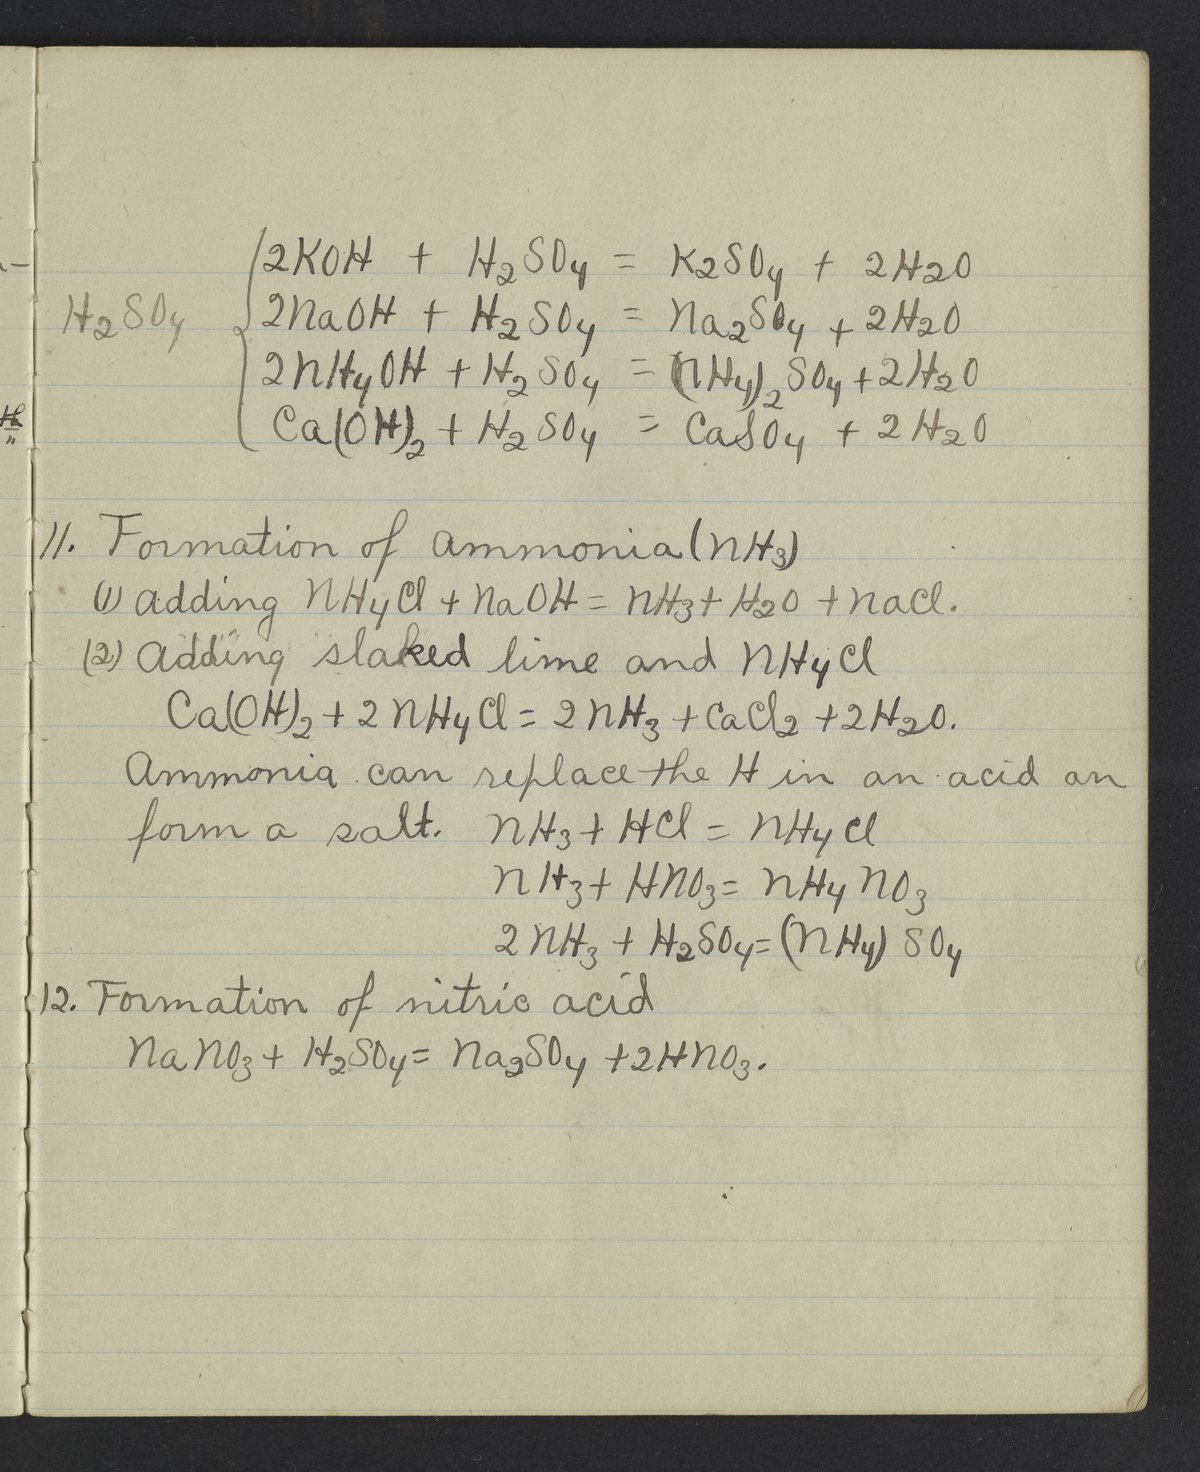 2KOH + H₂SO₄ = K₂SO₄ + 2H₂O
H₂SO₄ 2NaOH + H₂SO₄ = Na₂SO₄ + 2H₂O
2NH₄OH + H₂SO₄ = (NH₄)₂SO₄ + 2H₂O
Ca(OH)₂ + H₂SO₄ = CaSO₄ + 2H₂O
11. Formation of ammonia (NH₃)
(1) adding NH₄Cl + NaOH = NH₃ + H₂O + NaCl.
(2) Adding slaked lime and NH₄Cl
Ca(OH)₂ + 2NH₄Cl = 2NH₃ + CaCl₂ + 2H₂O.
Ammonia can replace the H in an acid an
form a salt. NH₃ + HCl = NH₄Cl
NH₃ + HNO₃ = NH₄NO₃
2NH₃ + H₂SO₄ = (NH₄) SO₄
12. Formation of nitric acid
NaNO₃ + H₂SO₄ = Na₂SO₄ + 2HNO₃.